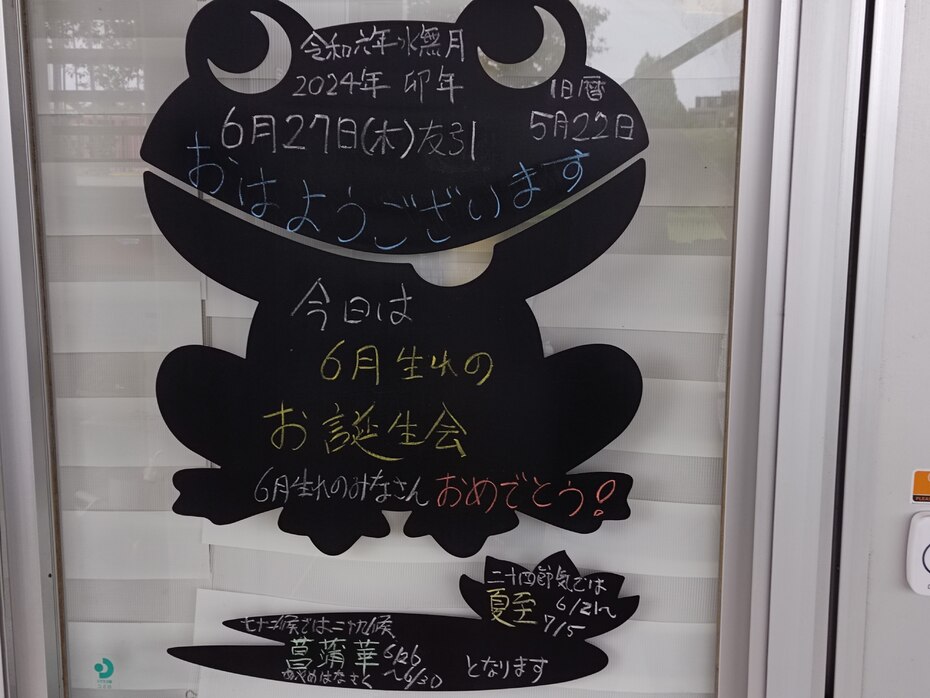 令和六年 水無月
2024年 卯年
旧暦
6月27日(木)友引
5月22日
おはようございます
今日は
6月生れの
お誕生会
6月生れのみなさん おめでとう!
二十四節気では
夏至 6/21〜
7/5
七十二候では二十九候
菖蒲華 6/26
あやめはなさく 〜6/30
となります